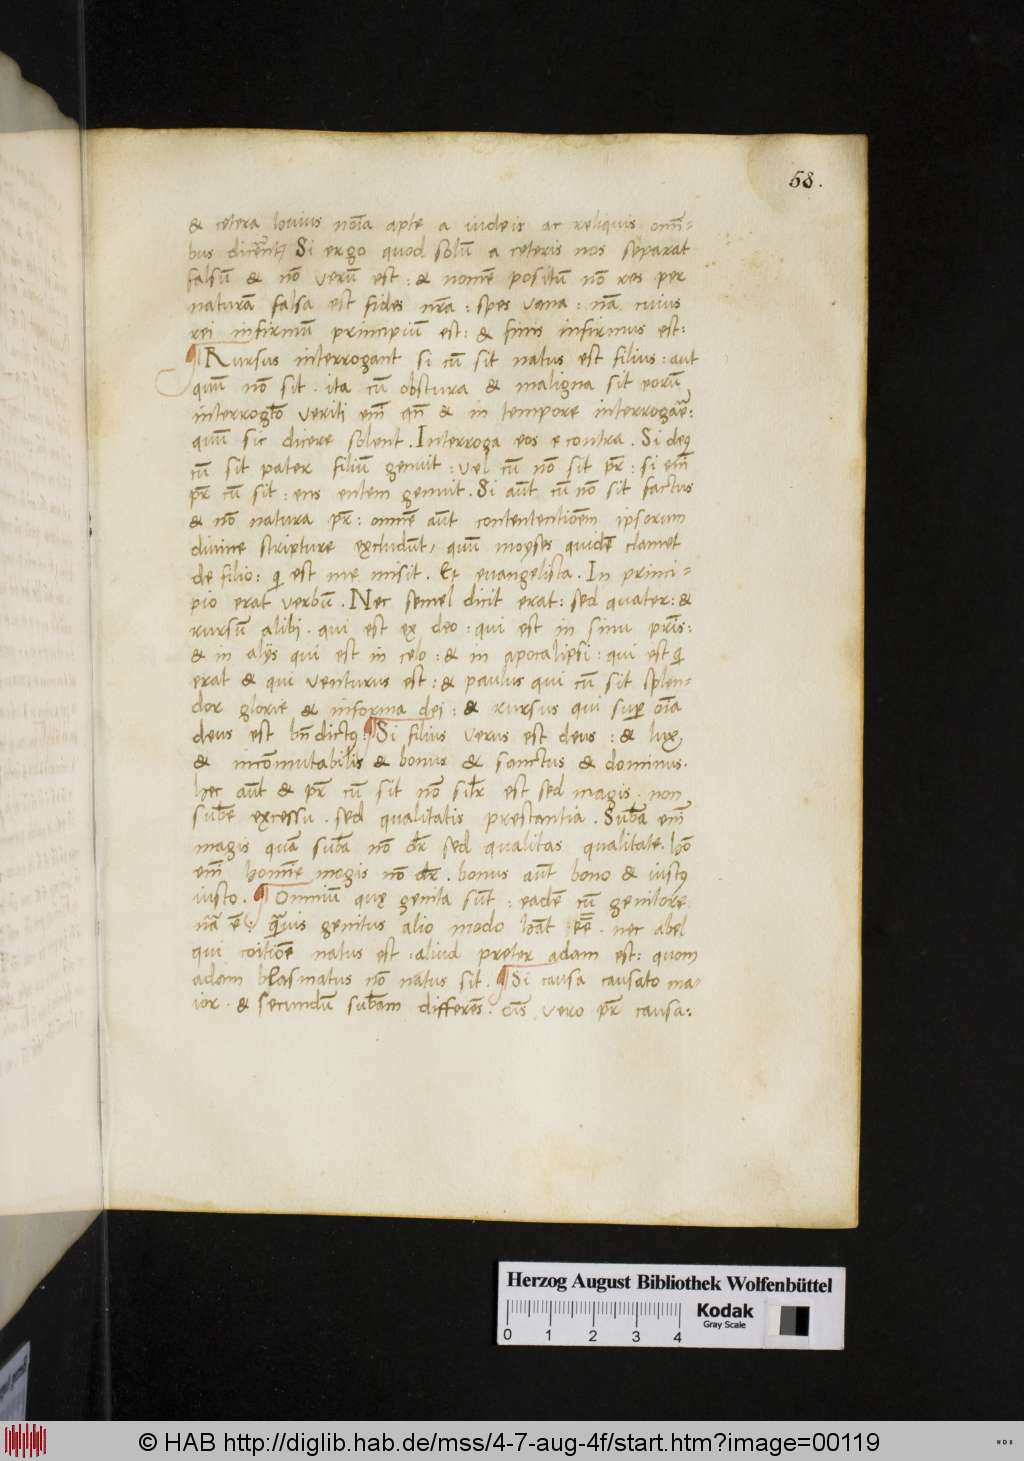 58.
& cetera louius noīa apte a iudeis ac reliquis omī=
bus dicent Si ergo quod solū a ceteris nos separat
falsū & nō verū est : & nomē positū nō res per
naturā falsa est fides nr̄a : spes vana : nā cuius
rei infirmū principiū est : & finis infirmus est :
¶ Rursus interrogant si cū sit natus est filius : aut
quū nō sit . ita cū obscura & maligna sit eorū
interrogtō veriti em̄ qn̄ & in tempore interrogāt :
quū sic dicere solent . Interroga eos e contra . Si deꝰ
cū sit pater filiū genuit : vel cū nō sit pr̄ : si em̄
pr̄ cū sit : ens entem genuit . Si aūt cū nō sit factus
& nō natura pr̄ : omnē aūt contententiōem ipsorum
divine scripture excludūt, quū moyses quidē clamet
de filio : qi est me misit . Et euangelista . In princi=
pio erat verbū . Nec semel dicit erat : sed quater : &
rursū alibi . qui est ex deo : qui est in sinu prīs :
& in alijs qui est in celo : & in apocalipsi : qui est qi
erat & qui venturus est : & paulus qui cū sit splen=
dor glorie & informa dei : & rursus qui sup oīa
deus est bn̄dictꝰ : ¶ Si filius verus est deus : & lux,
& incōmutabilis & bonus & sanctus & dominus .
hec aūt & pr̄ cū sit nō silr̄ est sed magis . non
subē excessu . sed qualitatis prestantia . Suba em̄
magis quā suba nō dr̄ sed qualitas qualitate . hō
em̄ homīe magis nō dr̄ . bonus aūt bono & iustꝰ
iusto . ¶ Omniū quę genita sūt : eadē cū genitore
nā ē : quāuis genitus alio modo hāt eē . nec abel
qui coitiōe natus est . aliud preter adam est : quom
adam blasmatus nō natus sit . ¶ Si causa causato ma=
ior . & secundū subam differēs . dīs vero pr̄ causa :
Herzog August Bibliothek Wolfenbüttel
Kodak
Gray Scale
0 1 2 3 4
© HAB http://diglib.hab.de/mss/4-7-aug-4f/start.htm?image=00119